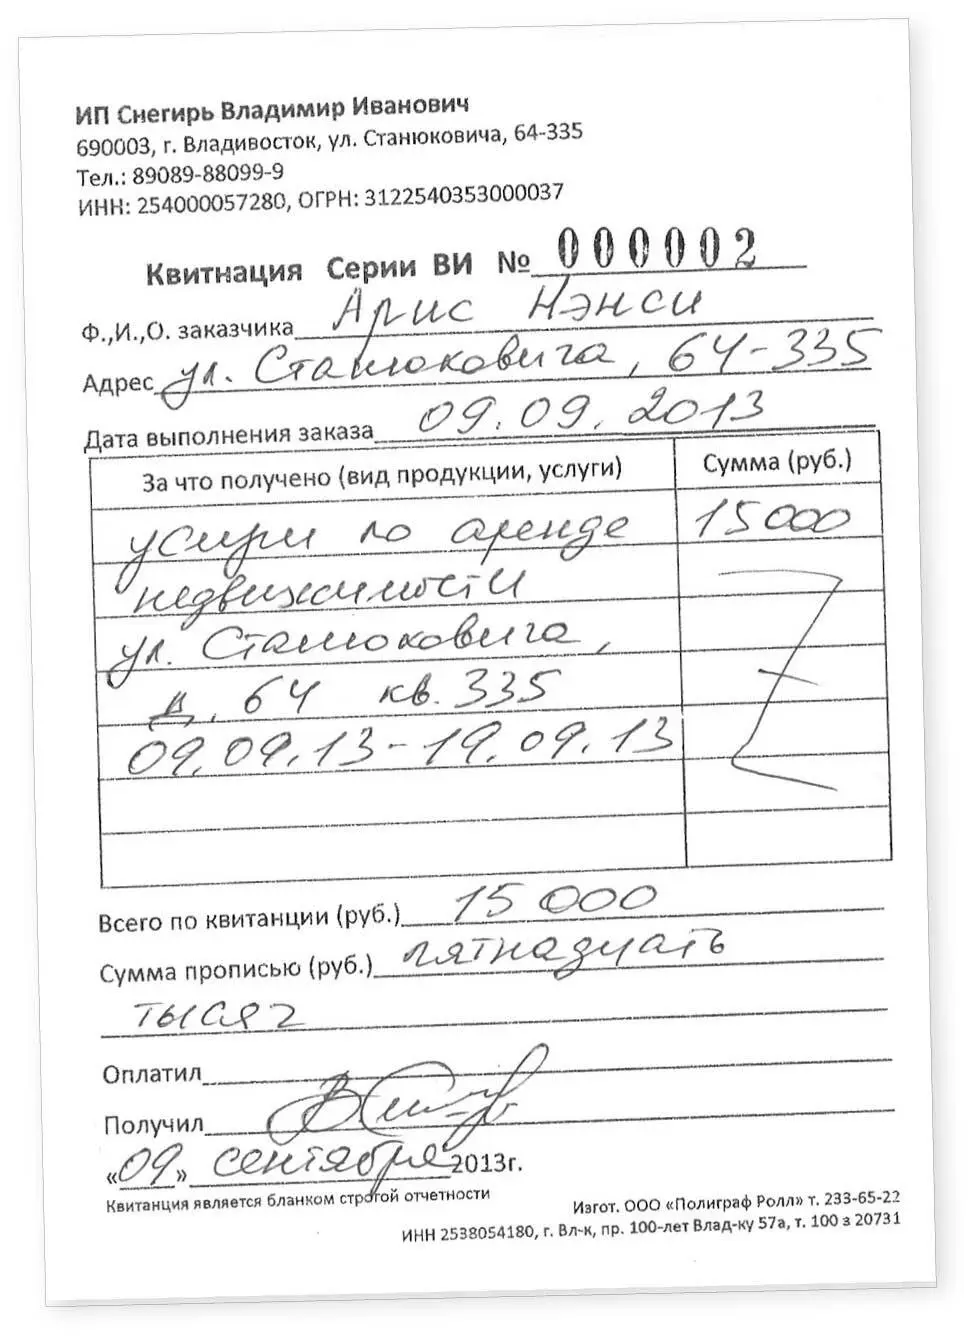 ИП Снегирь Владимир Иванович
690003, г. Владивосток, ул. Станюковича, 64-335
Тел.: 89089-88099-9
ИНН: 254000057280, ОГРН: 3122540353000037
Квитнация Серии ВИ № 000002
Ф.,И.,О. заказчика Арис Нэнси
Адрес ул. Станюковича, 64-335
Дата выполнения заказа 09.09.2013
За что получено (вид продукции, услуги) Сумма (руб.)
услуги по аренде 15000
недвижимости
ул. Станюковича,
д. 64 кв. 335
09.09.13-19.09.13
Всего по квитанции (руб.) 15 000
Сумма прописью (руб.) пятнадцать
тысяч
Оплатил
Получил
«09» сентября 2013г.
Квитанция является бланком строгой отчетности
Изгот. ООО «Полиграф Ролл» т. 233-65-22
ИНН 2538054180, г. Вл-к, пр. 100-лет Влад-ку 57а, т. 100 з 20731